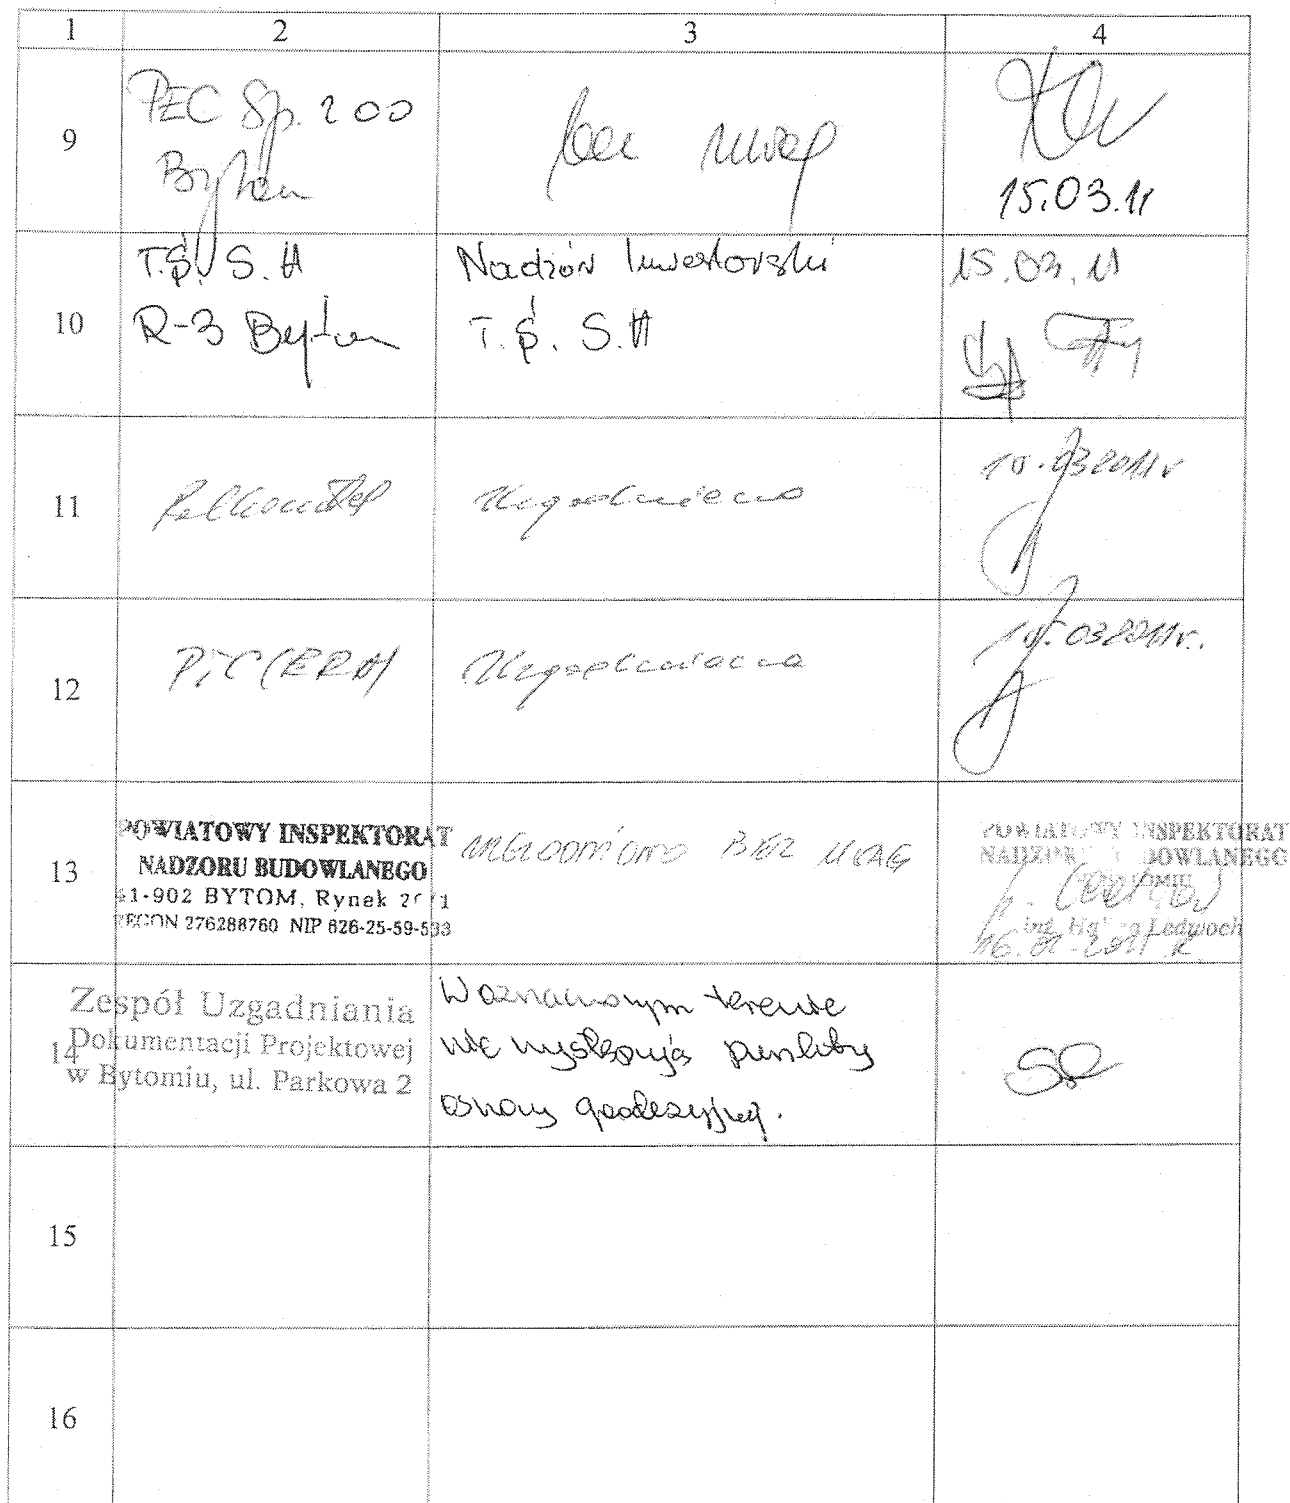 1 2 3 4
9
PEC Sp. z oo
Bytom
bez uwag
15.03.11
10
T.Ś. S.A
R-3 Bytom
Nadzór Inwestorski
T.Ś. S.A
15.03.11
11
Uzgodniono
03 2011r
12
PTC (ERA)
Uzgodniono
03 2011r.
13
POWIATOWY INSPEKTORAT
NADZORU BUDOWLANEGO
41-902 BYTOM, Rynek
REGON 276288760 NIP 626-25-59-533
UZGODNIONO BEZ UWAG
POWIATOWY INSPEKTORAT
NADZORU BUDOWLANEGO
inż. Ledwoch
14
Zespół Uzgadniania
Dokumentacji Projektowej
w Bytomiu, ul. Parkowa 2
W oznaczonym terenie
nie występują punkty
osnowy geodezyjnej.
15
16